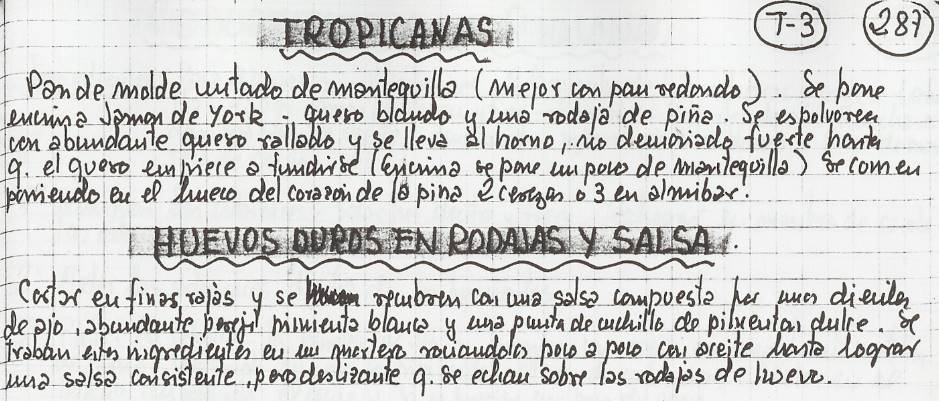 TROPICANAS T-3 287
Pan de molde untado de mantequilla (mejor con pan redondo). Se pone
encima Jamon de York - queso blando y una rodaja de piña. Se espolvorea
con abundante queso rallado y se lleva al horno, no demasiado fuerte hasta
q. el queso empiece a fundirse (Encima se pone un poco de mantequilla) Se comen
poniendo en el hueco del corazon de la piña 2 cerezas o 3 en almibar.
HUEVOS DUROS EN RODAJAS Y SALSA.
Cortar en finas rajas y se recubren con una salsa compuesta por unos dientes
de ajo, abundante perejil pimienta blanca y una punta de cuchillo de pimenton dulce. Se
traban estos ingredientes en un mortero rociandolos poco a poco con aceite hasta lograr
una salsa consistente, pero deslizante q. se echan sobre las rodajas de huevo.